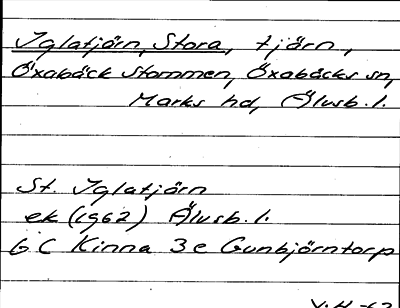 Iglatjärn, Stora, tjärn,
Öxabäck Stommen, Öxabäcks sn,
Marks hd, Älvsb.l.
St. Iglatjärn
ek (1962) Älvsb.l.
6 C Kinna 3 e Gunbjörntorp